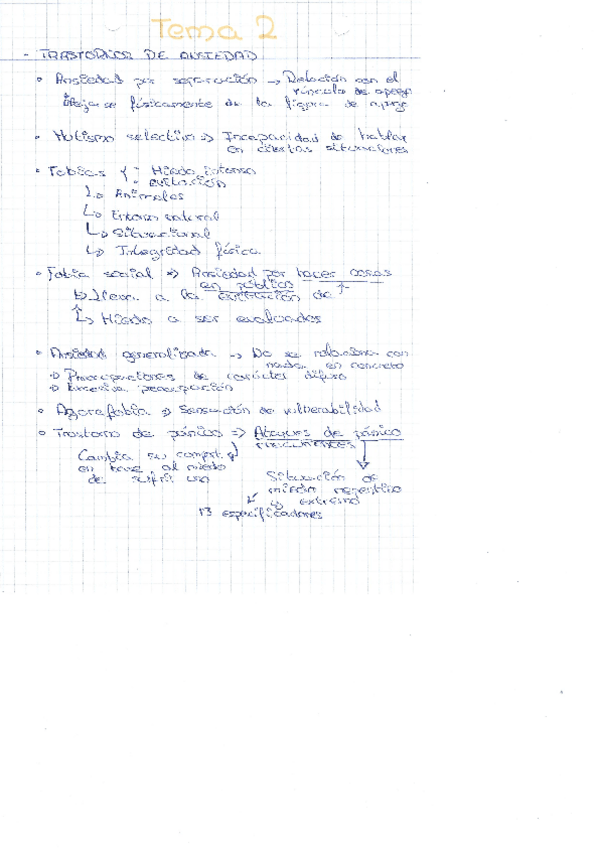 Tema 2
- TRASTORNOS DE ANSIEDAD
• Ansiedad por separación → Relación con el
vínculo de apego
Alejarse físicamente de la figura de apego
• Mutismo selectivo ⇒ Incapacidad de hablar
en ciertas situaciones
• Fobias { : Miedo intenso
: evitación
↳ Animales
↳ Entorno natural
↳ Situacional
↳ Integridad física
• Fobia social ⇒ Ansiedad por hacer cosas
en público
↳ Llevan a la evitación de ↑
↳ Miedo a ser evaluados
• Ansiedad generalizada → No se relaciona con
nada en concreto
→ Preocupaciones de carácter difuso
→ Excesiva preocupación
• Agorafobia ⇒ Sensación de vulnerabilidad
• Trastorno de pánico ⇒ Ataques de pánico
recurrentes
Cambia su comport.
en base al miedo
de sufrir uno
Situación de
miedo repentino
extremo
13 especificadores